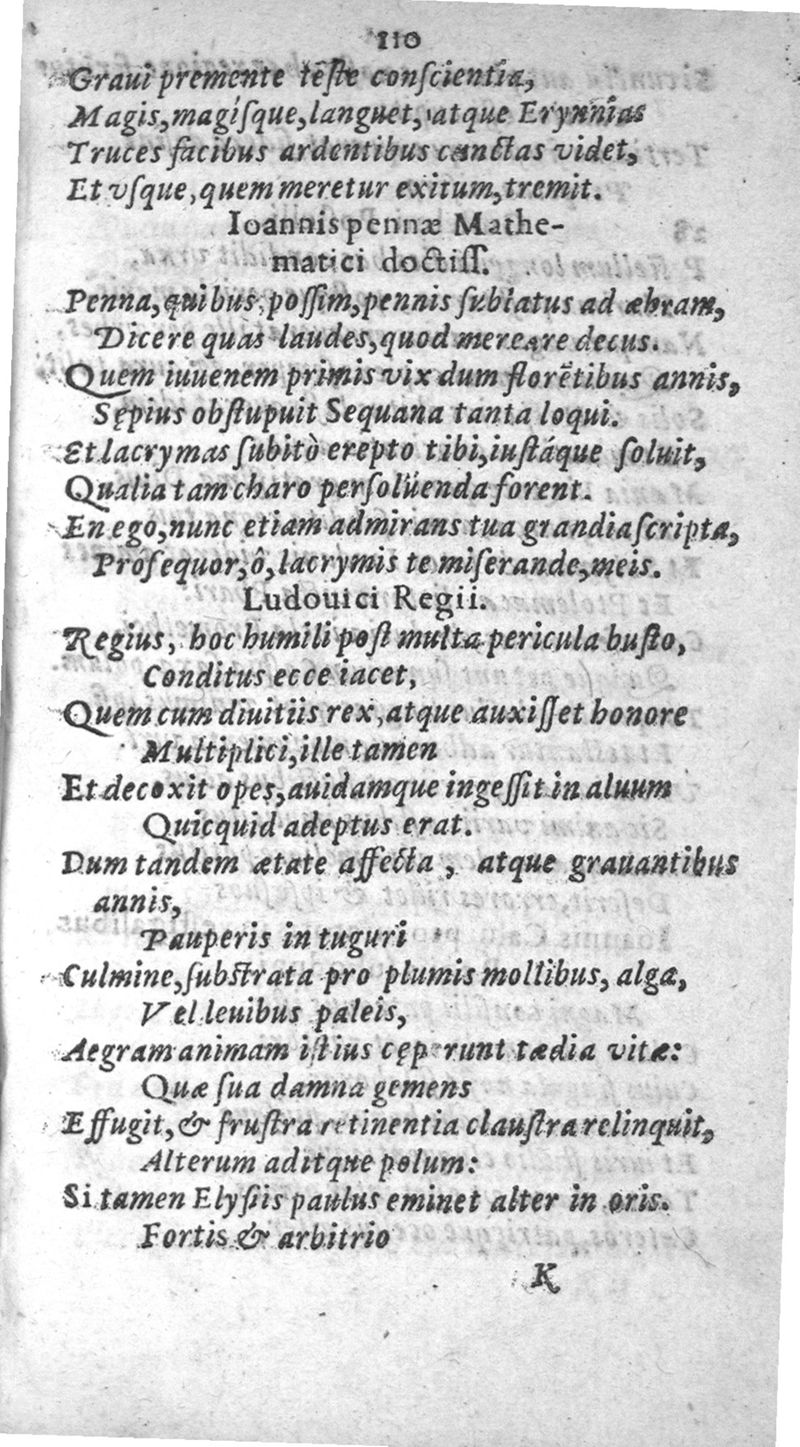 110
Graui premente tēste conſcientia,
Magis, magíſque, languet, atque Erynnias
Truces facibus ardentibus cunctas videt,
Et vſque, quem meretur exitum, tremit.
Ioannis pennæ Mathe-
matici doctiſſ.
Penna, quibus, poſſim, pennis ſublatus ad æhram,
Dicere quas laudes, quod mereare decus.
Quem iuuenem primis vix dum florētibus annis,
Sępius obſtupuit Sequana tanta loqui.
Et lacrymas ſubitò erepto tibi, iuſtáque ſoluit,
Qualia tam charo perſoluenda forent.
En ego, nunc etiam admirans tua grandia ſcripta,
Próſequor, ô, lacrymis te miſerande, meis.
Ludouici Regii.
Regius, hoc humili poſt multa pericula buſto,
Conditus ecce iacet,
Quem cum diuitiis rex, atque auxiſſet honore
Multiplici, ille tamen
Et decoxit opes, auidamque ingeſſit in aluum
Quicquid adeptus erat.
Dum tandem ætate affecta, atque grauantibus
annis,
Pauperis in tuguri
Culmine, ſubſtrata pro plumis mollibus, alga,
Vel leuibus paleis,
Aegram animam iſtius cęperunt tædia vitæ:
Quæ ſua damna gemens
Effugit, & fruſtra retinentia clauſtra relinquit,
Alterum aditque polum:
Si tamen Elyſiis paulus eminet alter in oris.
Fortis & arbitrio
K